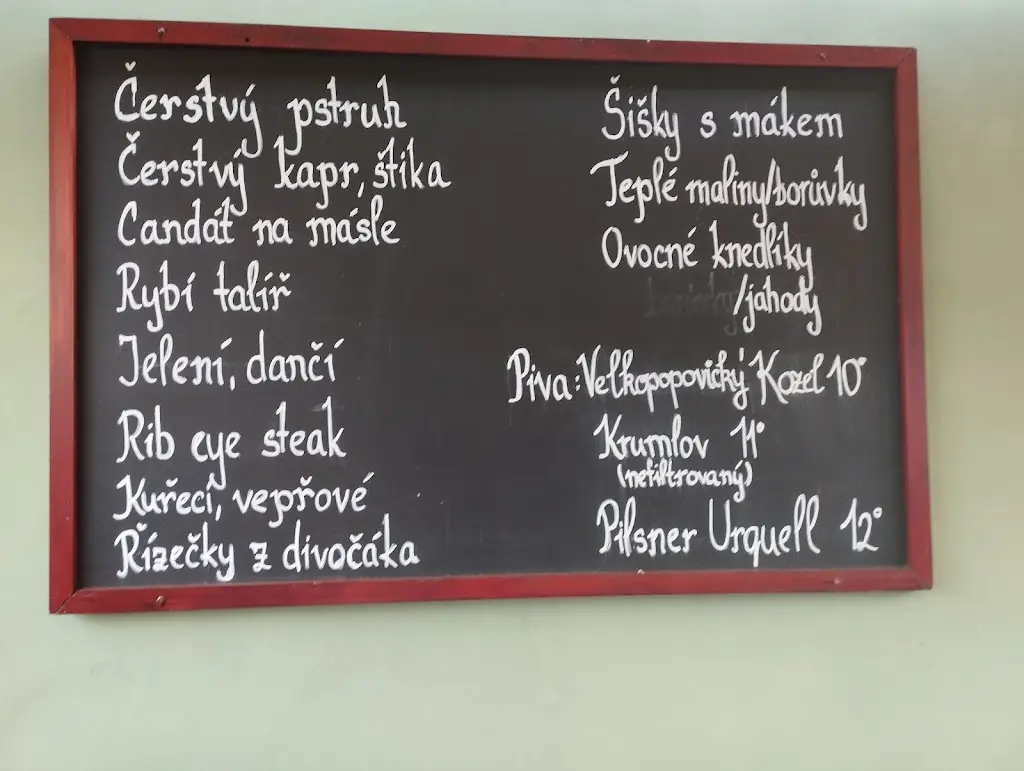 Čerstvý pstruh
Čerstvý kapr, štika
Candát na másle
Rybí talíř
Jelení, dančí
Rib eye steak
Kuřecí, vepřové
Řízečky z divočáka
Šišky s mákem
Teplé maliny/borůvky
Ovocné knedlíky
/jahody
Piva: Velkopopovický Kozel 10°
Krumlov 11°
(nefiltrovaný)
Pilsner Urquell 12°